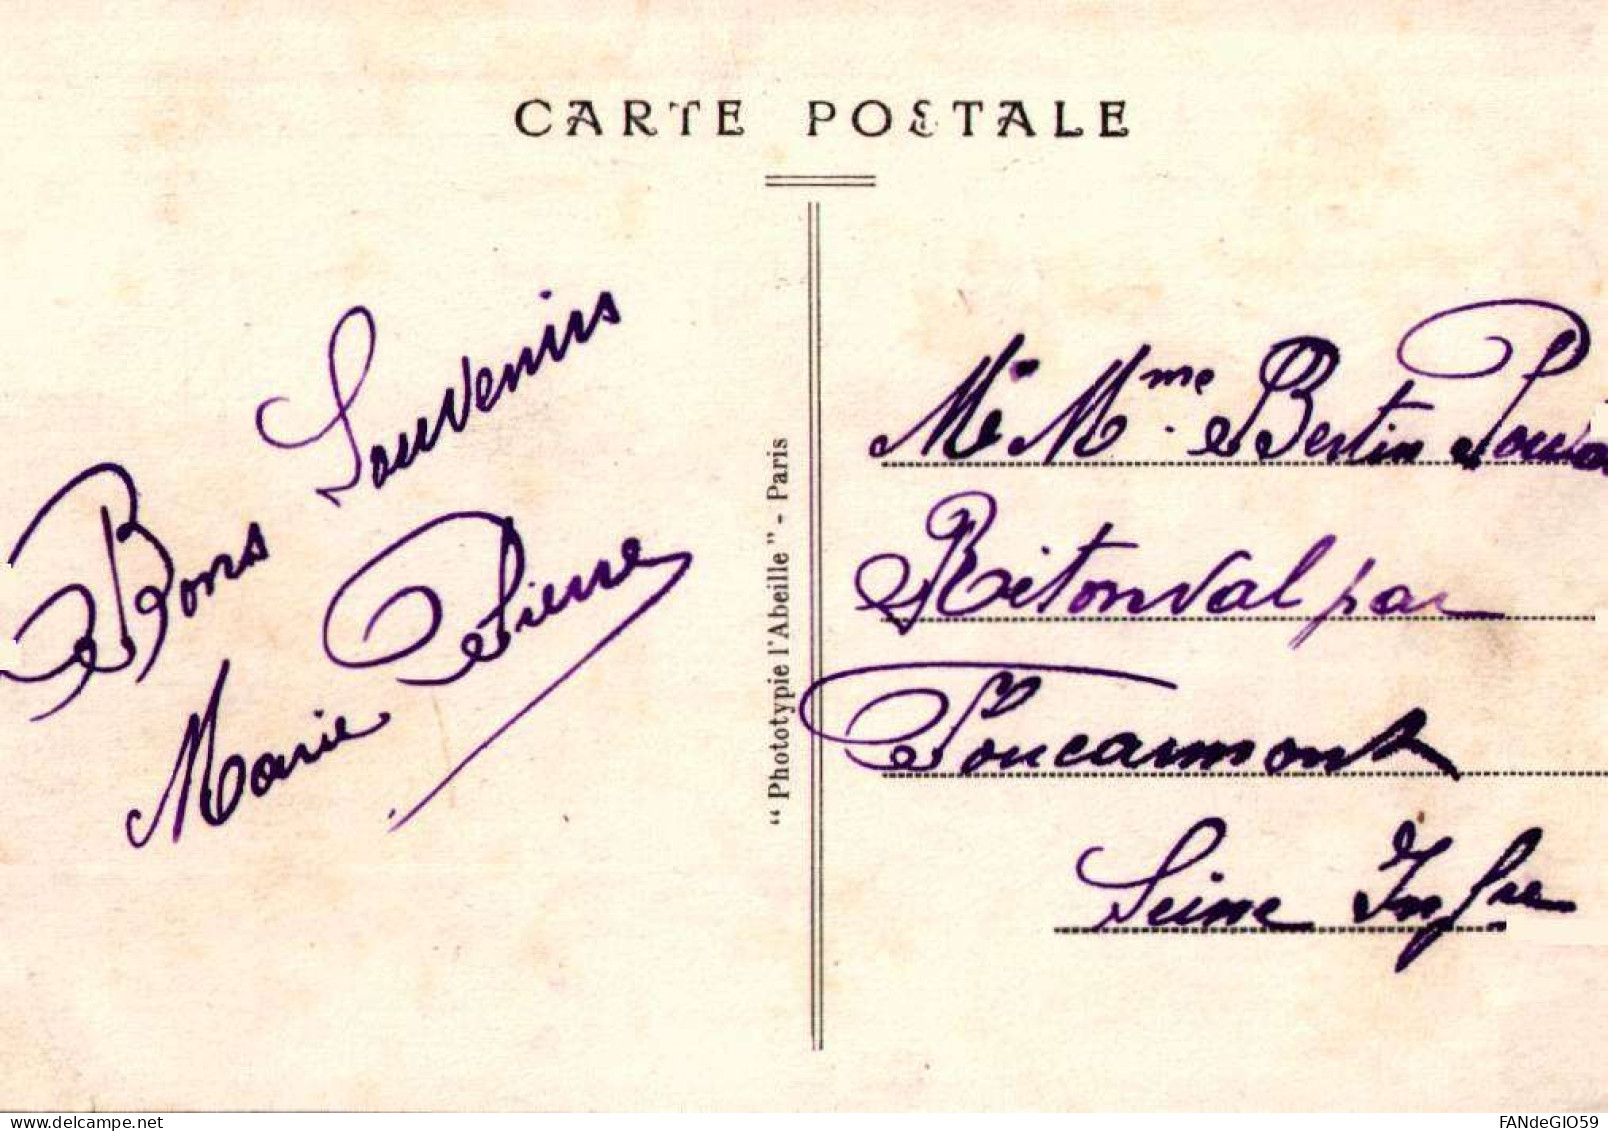 CARTE POSTALE
Bons Souvenirs
Marie Pierre
"Phototypie l'Abeille" - Paris
M. Mme Bertin
Retonval par
Foucarmont
Seine Infre
delcampe.net
FANdeGIO59